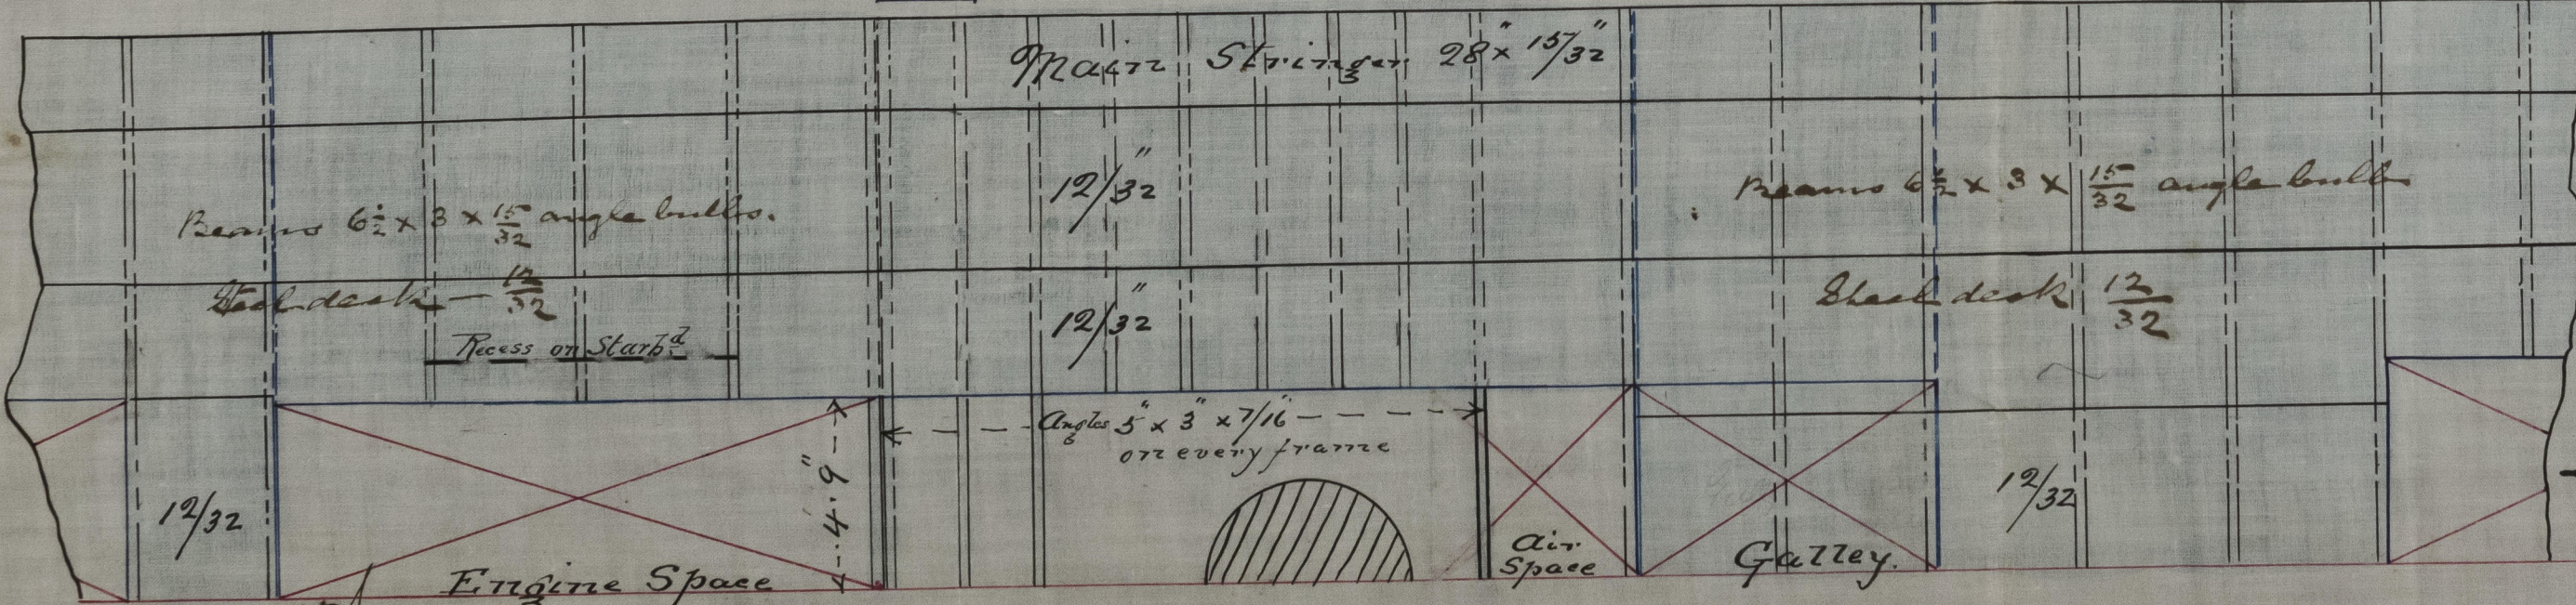 Main Stringer 28" x 15/32"
12/32"
Beams 6½ x 3 x 15/32 angle bulbs.
Beams 6½ x 3 x 15/32 angle bulb
Steel deck — 12/32
12/32"
Steel deck 12/32
Recess on Starbd
4'.9"
Angles 5" x 3" x 7/16"
on every frame
12/32
12/32
Engine Space
Air
Space
Galley.